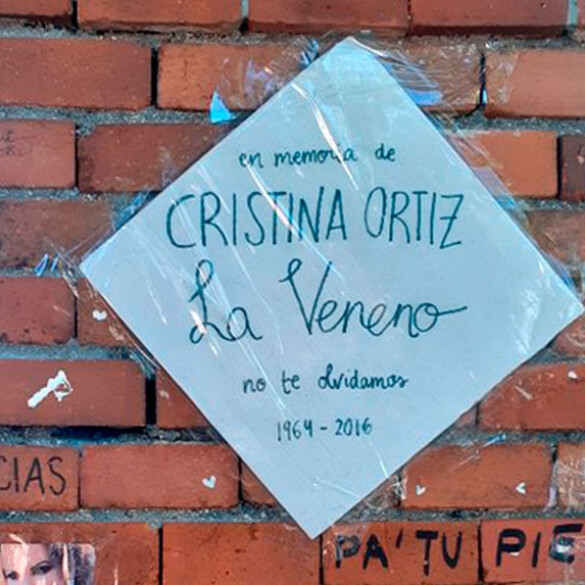 en memoria de
CRISTINA ORTIZ
La Veneno
no te olvidamos
1964 - 2016
CIAS
PA' TU PIE